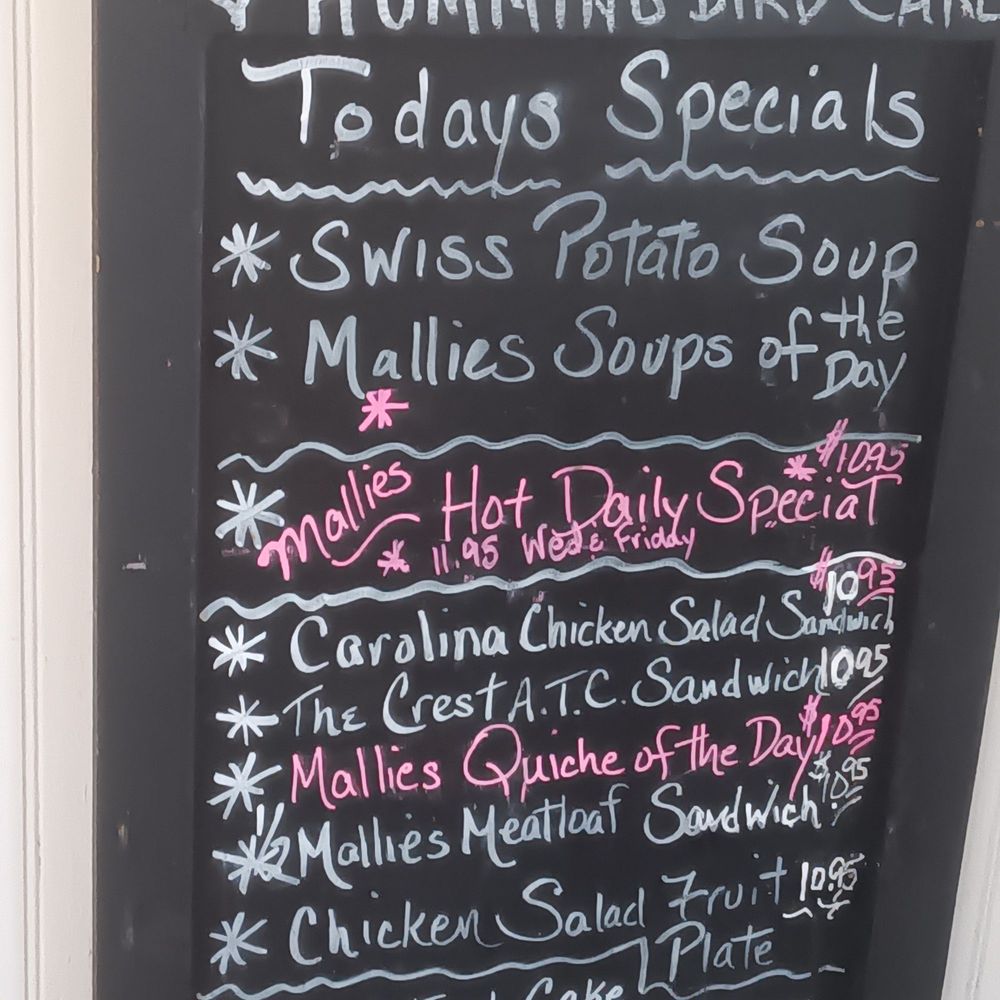 HUMMING BIRD CAKE
Todays Specials
* Swiss Potato Soup
* Mallies Soups of the Day
*
* Mallies Hot Daily Special * $10.95
* 11.95 Wed & Friday
* Carolina Chicken Salad Sandwich $10.95
* The Crest A.T.C. Sandwich 10.95
* Mallies Quiche of the Day $10.95
* 1/2 Mallies Meatloaf Sandwich $10.95
* Chicken Salad Fruit Plate 10.95
Cake